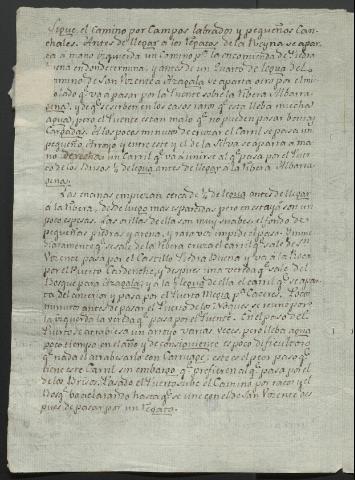 Sigue el camino por Campos labrados y pequeños Can-
chales. Antes de llegar a los Tejares de la Reyna se apar-
ta a mano izquierda un camino pa. la encomienda de Piedra
buena
Camino de San Vizente a Azagala se aparta otro por el mi-
q. va a pasar por la Puente sobre la Ribera Albarra-
gena, y de q. se sirben en los casos raros q. esta lleba mucha
agua, pero el Puente es tan malo q. no pueden pasar bestias
Cargadas. A los pocos minutos de cruzar el Carril se pasa un
pequeño Arroyo y entre este y el de la Silva se aparta a ma-
no derecha un Carril q. va a unirse al q. pasa por el Puer-
to de los ¼ de legua antes de llegar a la Ribera Albarra-
gena.
Las encinas empiezan cerca de ¼ de legua antes de llegar
a la Ribera, desde luego mas espardidas, pero en estas son un
poco espesas. Las orillas de ella son muy suabes el fondo de
pequeñas piedras y arena, y rara vez impide el paso. Inme-
diatamente q. se sale de la Ribera cruza el carril q. sale de Sn.
Vizente pasa por el Castillo Piedra Buena y va a la Roca
por el Puerto y despues una vereda q. sale del
Bosque para Azagala; y a la legua de ella el carril q. se apar-
ta del anterior y pasa por el Puerto pa. Caceres. Poco
minutos antes de pasar el Puerto de los se reune por
la izquierda la vereda q. pasa por el Puente. En el paso del
Puerto se atrabiesa un arroyo varias veces, pero lleba agua
poco tiempo en el año y de consiguiente es poco dificultoso
q. nada el atrabesarlo con Carruage; este es el peor paso q.
tiene este Carril sin embargo q. prefieren al q. pasa por el
de los Pasado el Puerto sube el Camino por raso y el
Bosq. aclarando hasta q. se une con el de San Vizente des-
pues de pasar por un Tejar.